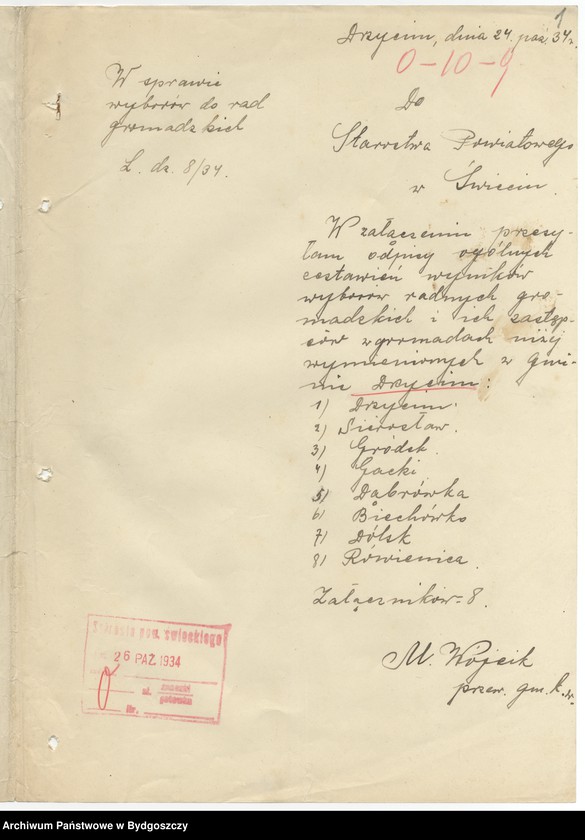 1
Drzycim, dnia 24. paź 34 r.
0-10-9
W sprawie
wyborów do rad
gromadzkich
L. dz. 8/34.
Do
Starostwa Powiatowego
w Świeciu.
W załączeniu przesy-
łam odpisy ogólnych
zestawień wyników
wyborów radnych gro-
madzkich i ich zastęp-
ców w gromadach niżej
wymienionych z gmi-
nie Drzycim:
1) Drzycim.
2) Sierosław.
3) Gródek.
4) Gacki
5) Dąbrówka
6) Biechówko
7) Dólsk
8) Rówienica.
Załączników - 8.
M. Wójcik
przew. gm. k. w.
Starosta pow. świeckiego
26 PAŹ. 1934
zł.
znaczki
gotówką
Nr.
Archiwum Państwowe w Bydgoszczy